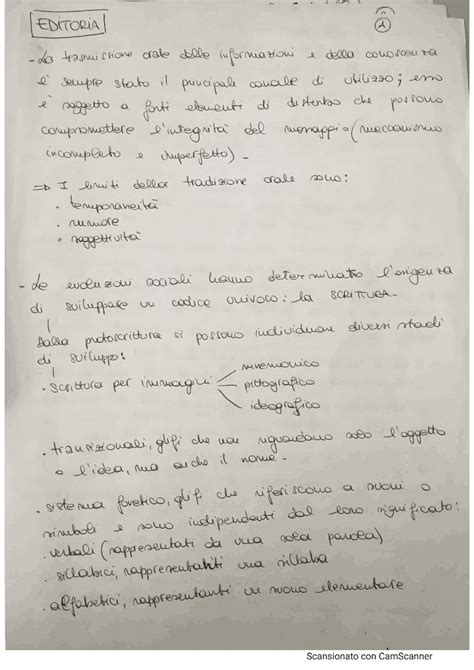 EDITORIA
1
- La trasmissione orale delle informazioni e della conoscenza
è sempre stato il principale canale di utilizzo; esso
è soggetto a forti elementi di disturbo che possono
compromettere l'integrità del messaggio (meccanismo
incompleto e imperfetto).
=> I limiti della tradizione orale sono:
• temporaneità
• rumore
• soggettività
- Le evoluzioni sociali hanno determinato l'esigenza
di sviluppare un codice univoco: la SCRITTURA.
Dalla protoscrittura si possono individuare diversi stadi
di sviluppo:
• scrittura per immagini
mnemonico
pittografico
ideografico
• transizionali, glifi che non riguardano solo l'oggetto
o l'idea, ma anche il nome.
• sistema fonetico, glifi che riferiscono a suoni o
simboli e sono indipendenti dal loro significato:
• verbali (rappresentati da una sola parola)
• sillabici, rappresentanti una sillaba
• alfabetici, rappresentanti un suono elementare
Scansionato con CamScanner